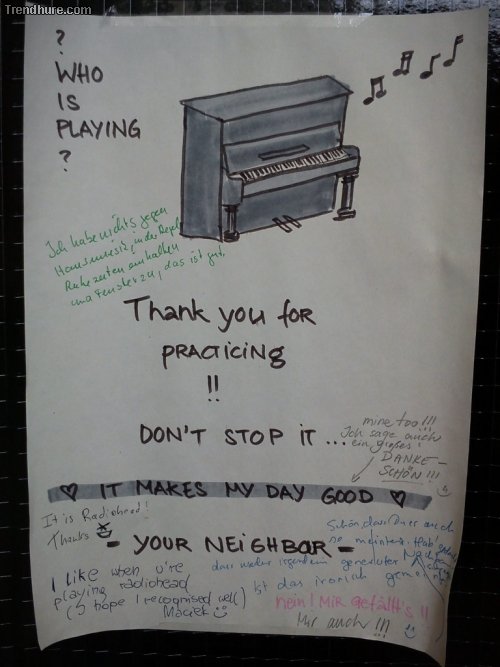 Trendhure.com
?
WHO
IS
PLAYING
?
Ich habe nichts gegen
Hausmusik, in der Regel
Ruhezeiten einhalten
das ist gut.
Thank you for
PRACTICING
!!
DON'T STOP IT ...
mine too!!!
Ich sage auch
ein großes
DANKE-
SCHÖN!!!
♡ IT MAKES MY DAY GOOD ♡
It is Radiohead!
Thanks
- YOUR NEIGHBOR -
Schön dass Du er auch
so
I like when u're
playing radiohead
(I hope I recognised well)
Maciek
Ist das ironisch gemeint
nein! Mir gefällt's!!
Mir auch!!!